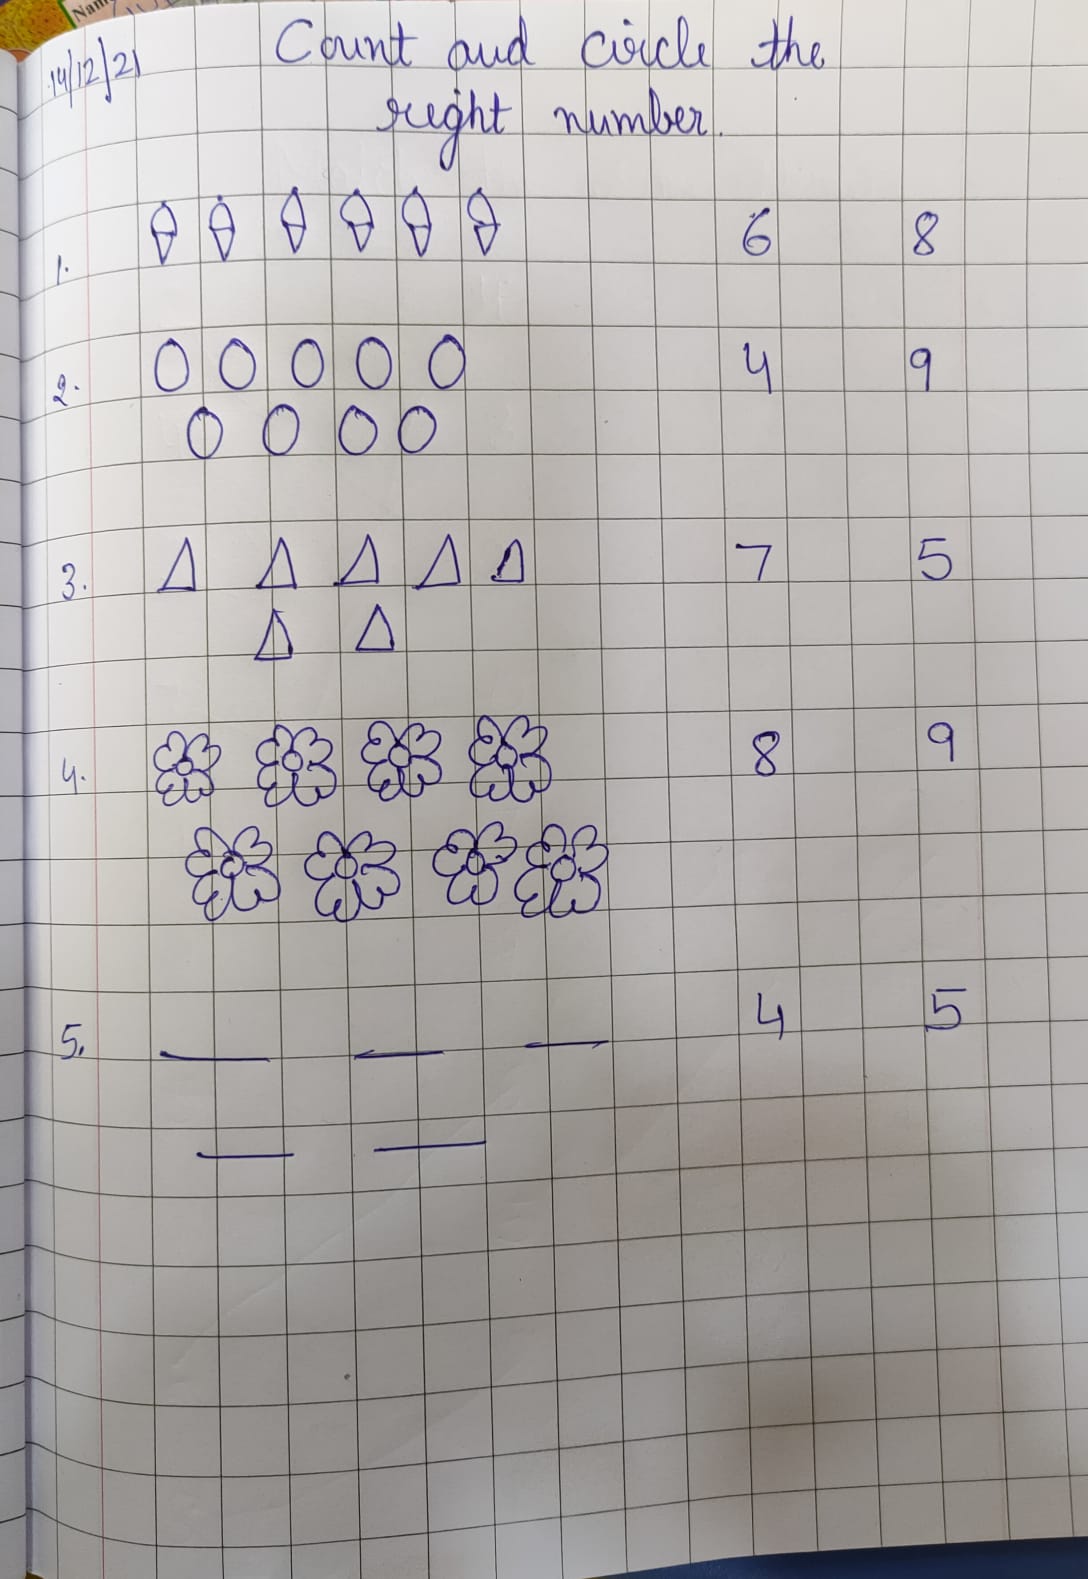 Nam
14/12/21
Count and circle the
right number.
1. 6 8
2. 4 9
3. 7 5
4. 8 9
5. 4 5